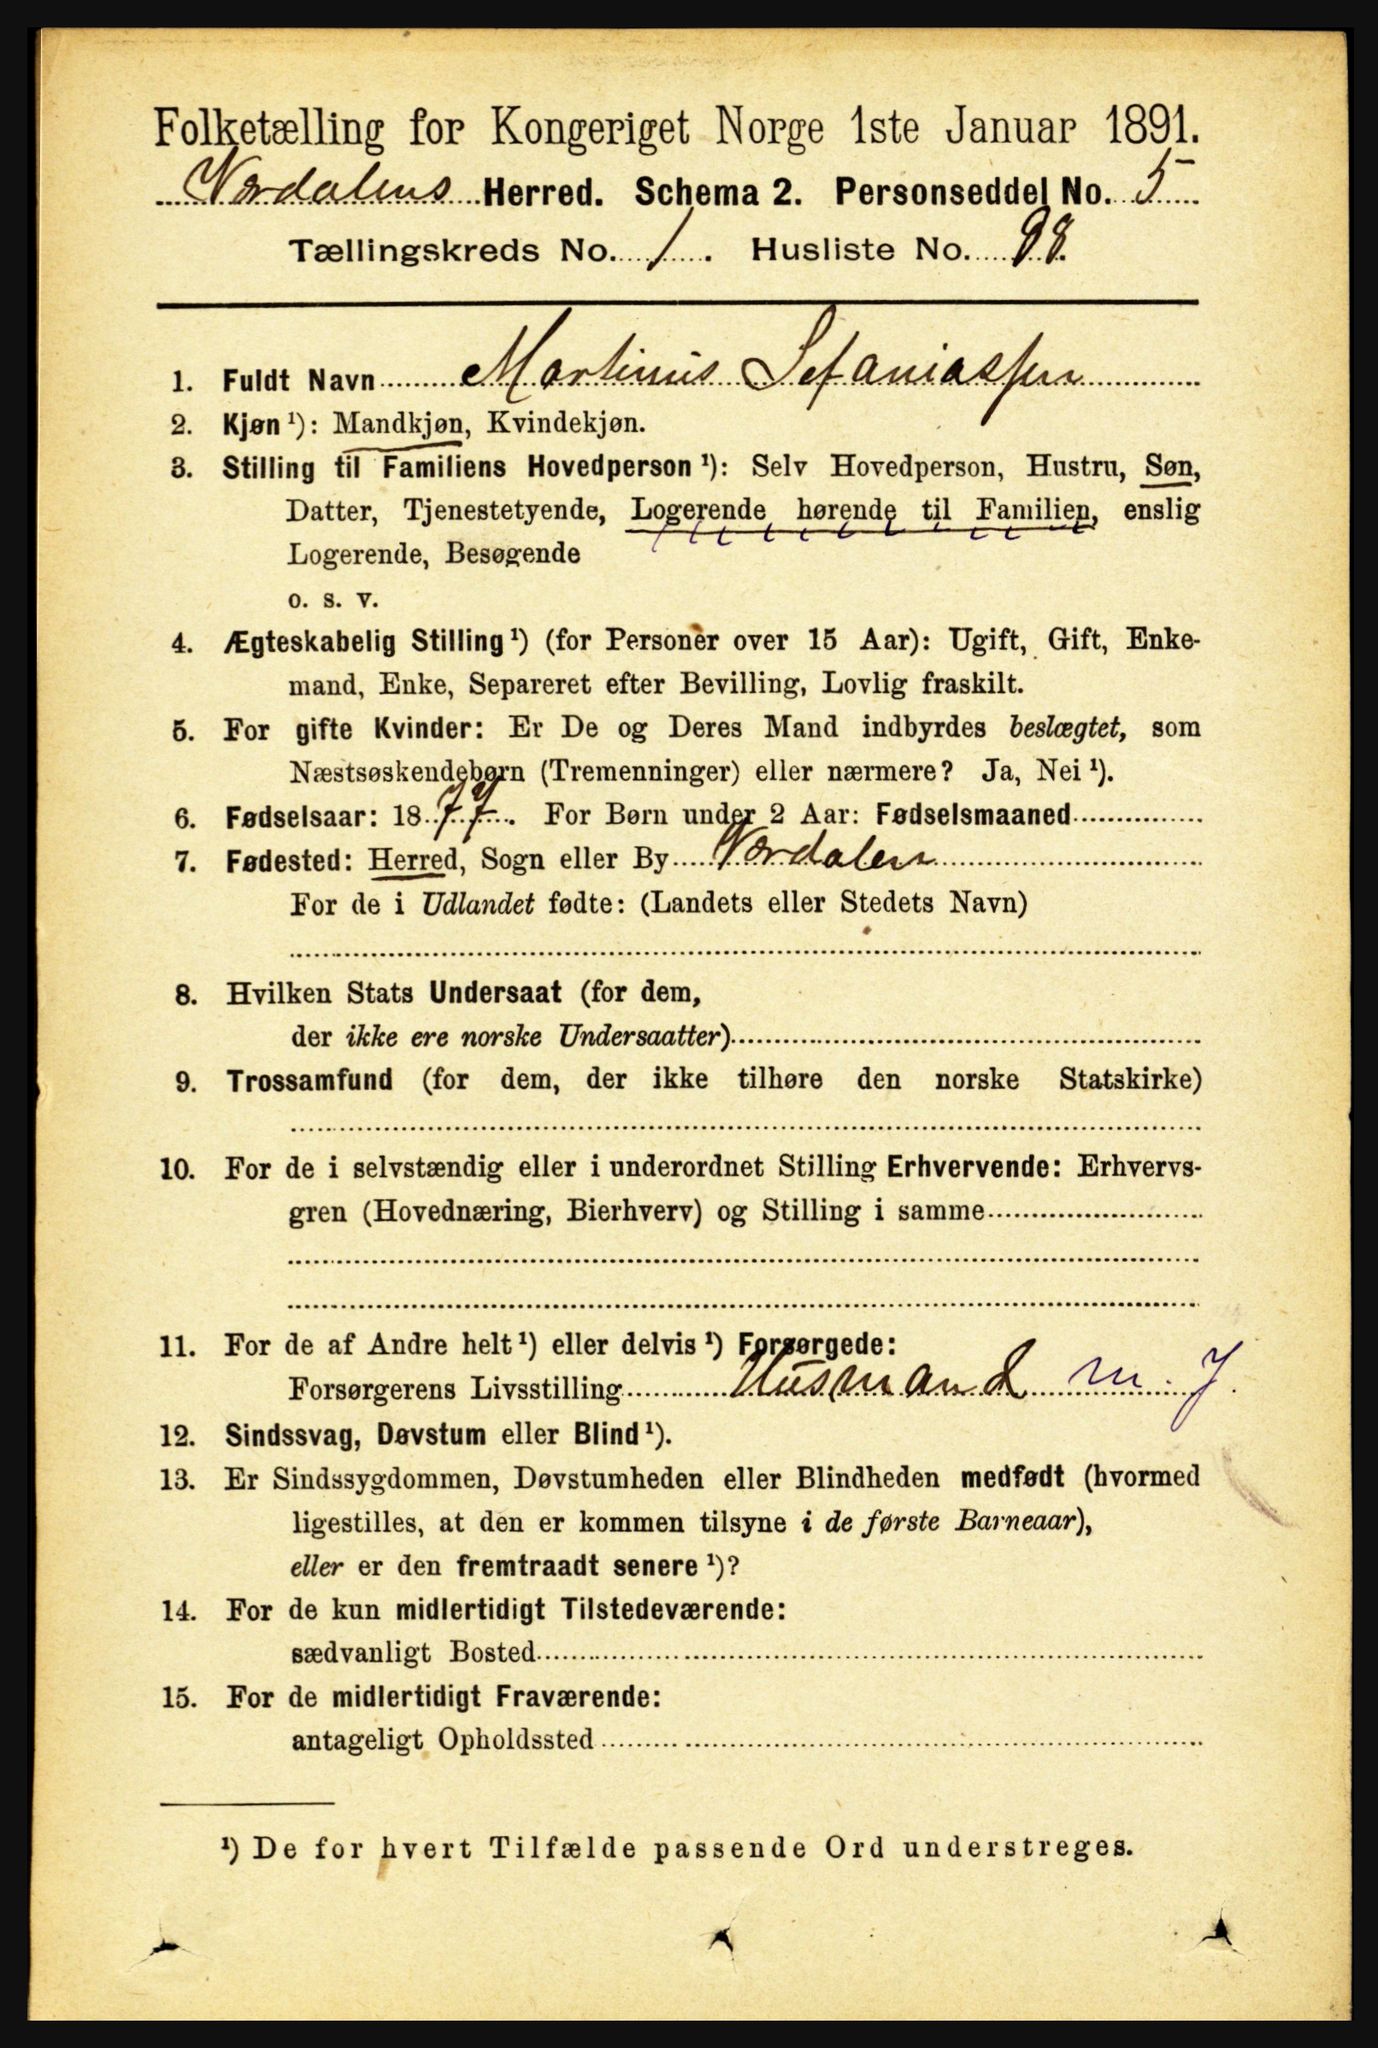 Folketælling for Kongeriget Norge 1ste Januar 1891.
Nordalens Herred. Schema 2. Personseddel No. 5
Tællingskreds No. 1. Husliste No. 98.
1. Fuldt Navn Martinus Sefaniassen
2. Kjøn ¹): Mandkjøn, Kvindekjøn.
3. Stilling til Familiens Hovedperson ¹): Selv Hovedperson, Hustru, Søn,
Datter, Tjenestetyende, Logerende hørende til Familien, enslig
Logerende, Besøgende
o. s. v.
4. Ægteskabelig Stilling ¹) (for Personer over 15 Aar): Ugift, Gift, Enke-
mand, Enke, Separeret efter Bevilling, Lovlig fraskilt.
5. For gifte Kvinder: Er De og Deres Mand indbyrdes beslægtet, som
Næstsøskendebørn (Tremenninger) eller nærmere? Ja, Nei ¹).
6. Fødselsaar: 1877. For Børn under 2 Aar: Fødselsmaaned
7. Fødested: Herred, Sogn eller By Nordalen
For de i Udlandet fødte: (Landets eller Stedets Navn)
8. Hvilken Stats Undersaat (for dem,
der ikke ere norske Undersaatter)
9. Trossamfund (for dem, der ikke tilhøre den norske Statskirke)
10. For de i selvstændig eller i underordnet Stilling Erhvervende: Erhvervs-
gren (Hovednæring, Bierhverv) og Stilling i samme
11. For de af Andre helt ¹) eller delvis ¹) Forsørgede:
Forsørgerens Livsstilling Husmand m. J.
12. Sindssvag, Døvstum eller Blind ¹).
13. Er Sindssygdommen, Døvstumheden eller Blindheden medfødt (hvormed
ligestilles, at den er kommen tilsyne i de første Barneaar),
eller er den fremtraadt senere ¹)?
14. For de kun midlertidigt Tilstedeværende:
sædvanligt Bosted
15. For de midlertidigt Fraværende:
antageligt Opholdssted
¹) De for hvert Tilfælde passende Ord understreges.